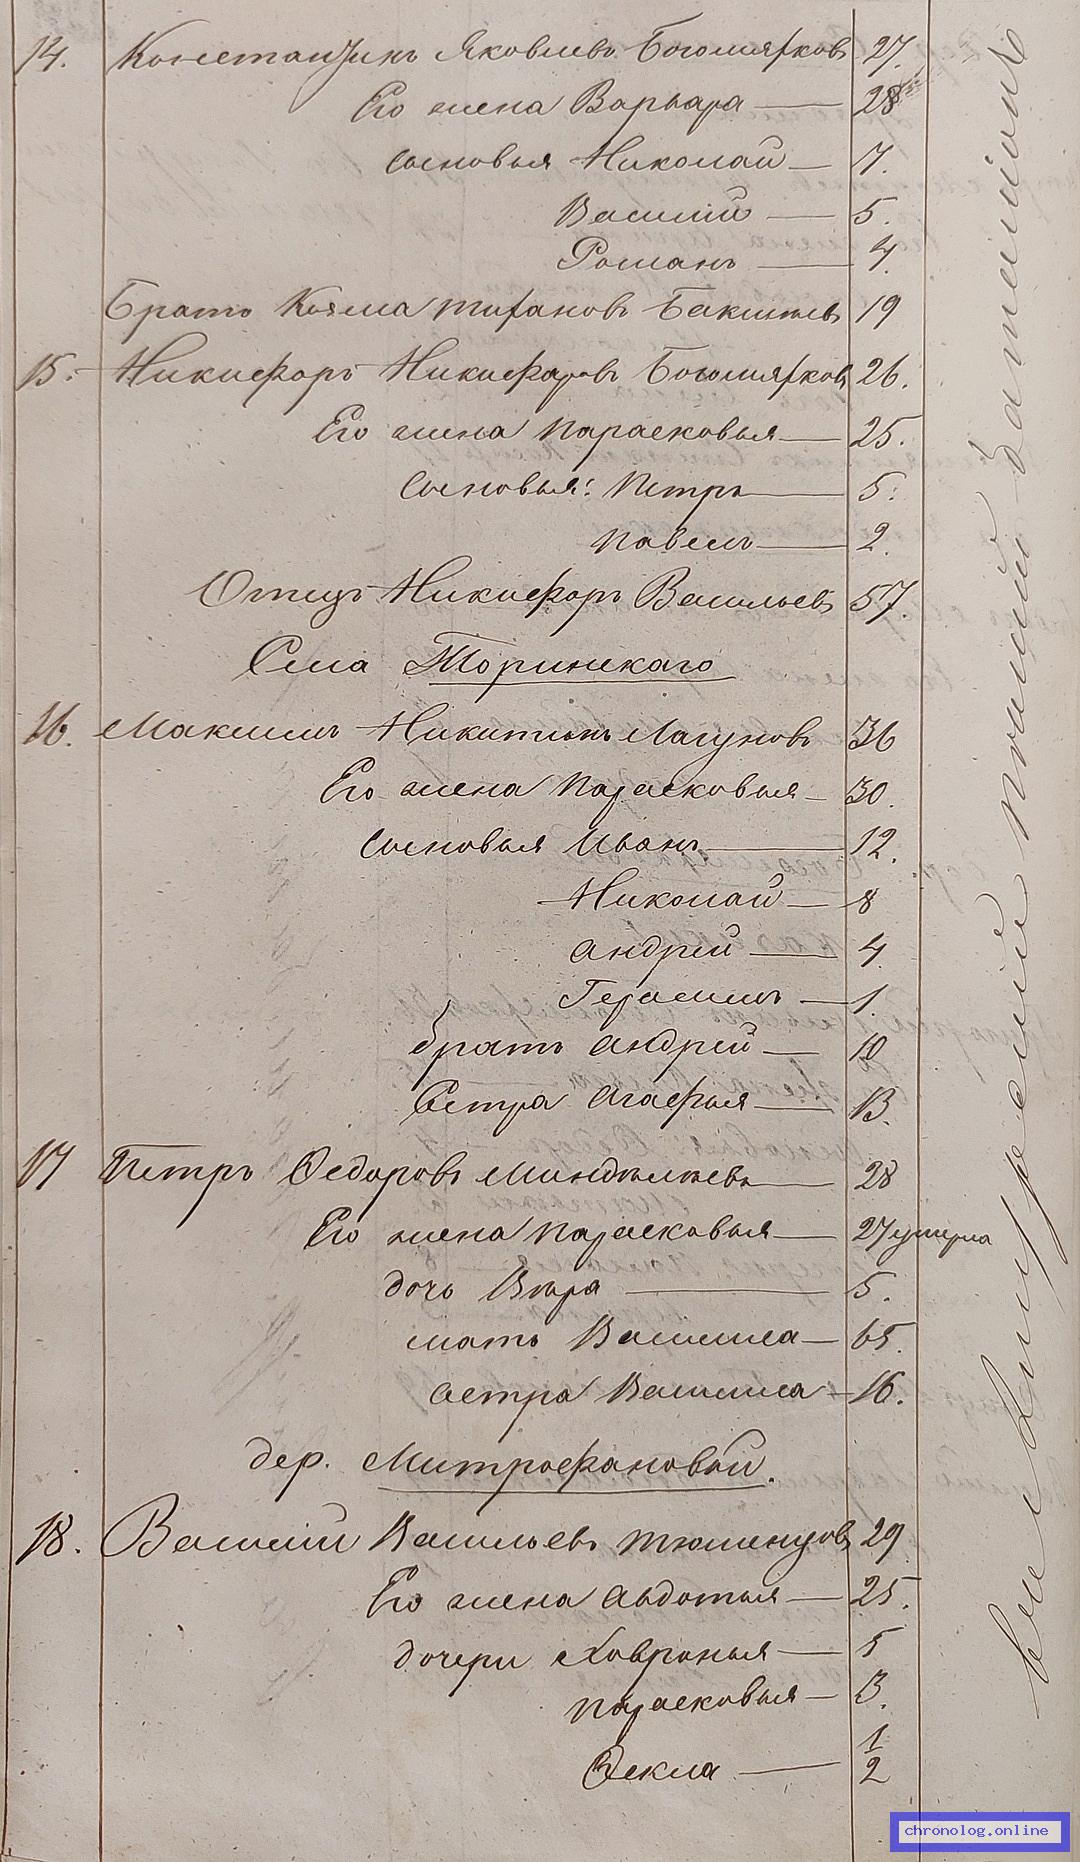 14. Константинъ Яковлевъ Богомяфковъ 27.
Его жена Варвара — 28
сыновья Николай — 7.
Василий — 5.
Романъ — 4.
Братъ Козма 19
15. Никифоръ Никифоровъ Богомяфковъ 26.
Его жена Парасковья — 25.
Сыновья: Петръ — 5.
Павелъ — 2.
Отецъ Никифоръ Васильевъ 57.
Села Торинскаго
16. Максимъ Никитинъ Лагуновъ 36
Его жена Парасковья — 30.
Сыновья Иванъ — 12.
Николай — 8
Андрей — 4.
Герасимъ — 1.
братъ Андрей — 10
Сестра Агафья — 13.
17 Петръ Федоровъ 28
Его жена Парасковья — 27 умерла
дочь Вѣра — 5.
мать Василиса — 65.
сестра Василиса — 16.
дер. Митрофановой.
18. Василий Васильевъ Тюменцовъ 29
Его жена Авдотья — 25.
дочери Ховронья — 5
Парасковья — 3.
Фекла — 1/2
chronolog.online